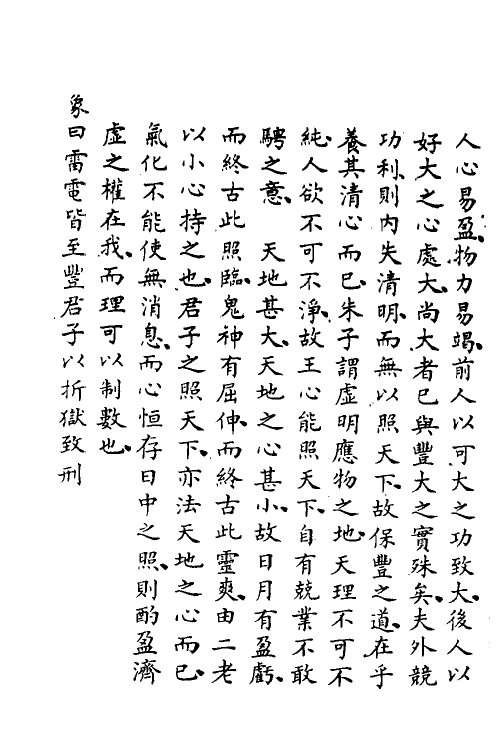 人心易盈、物力易竭、前人以可大之功致大、後人以
好大之心處大、尚大者已與豐大之實殊矣、夫外競
功利、則内失清明、而無以照天下、故保豐之道、在乎
養其清心而已、朱子謂虛明應物之地、天理不可不
純、人欲不可不淨、故王心能照天下、自有兢業不敢
騁之意　天地甚大、天地之心甚小、故日月有盈虧、
而終古此照臨、鬼神有屈伸、而終古此靈爽、由二老
以小心持之也、君子之照天下、亦法天地之心而已、
氣化不能使無消息、而心恒存日中之照、則酌盈濟
虛之權在我、而理可以制數也、
象曰雷電皆至豐君子以折獄致刑